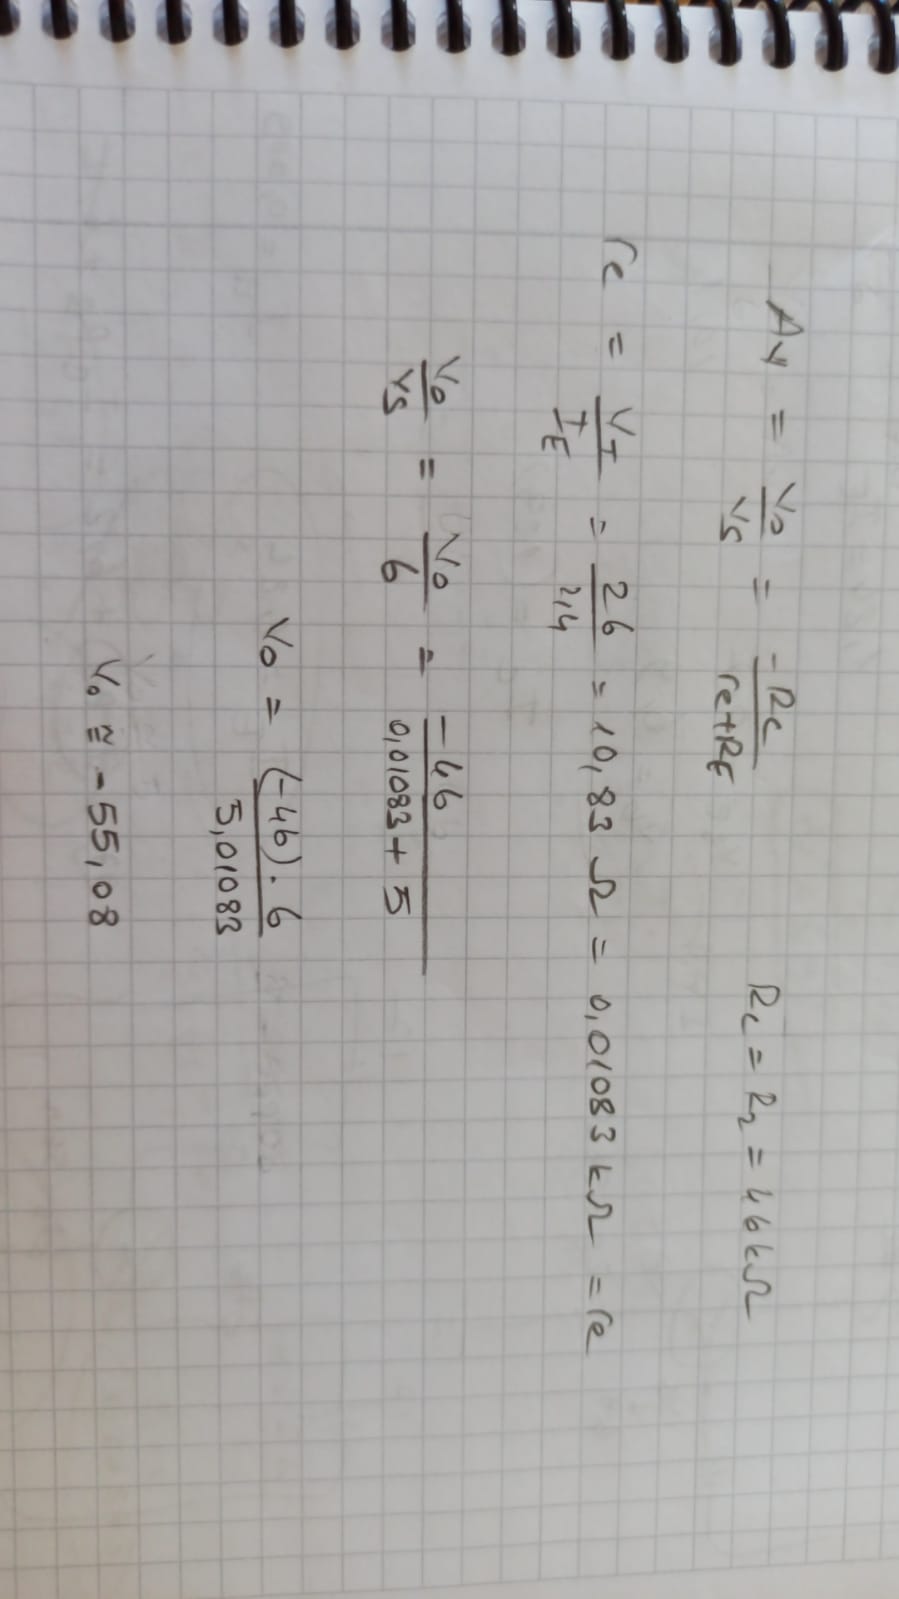 Av = Vo/Vs = -Rc/(re+RE)    Rc = R2 = 46kΩ
re = VT/IE = 26/2,4 = 10,83 Ω = 0,01083 kΩ = re
Vo/Vs = Vo/6 = -46/(0,01083 + 5)
Vo = (-46) . 6/5,01083
Vo ≅ -55,08